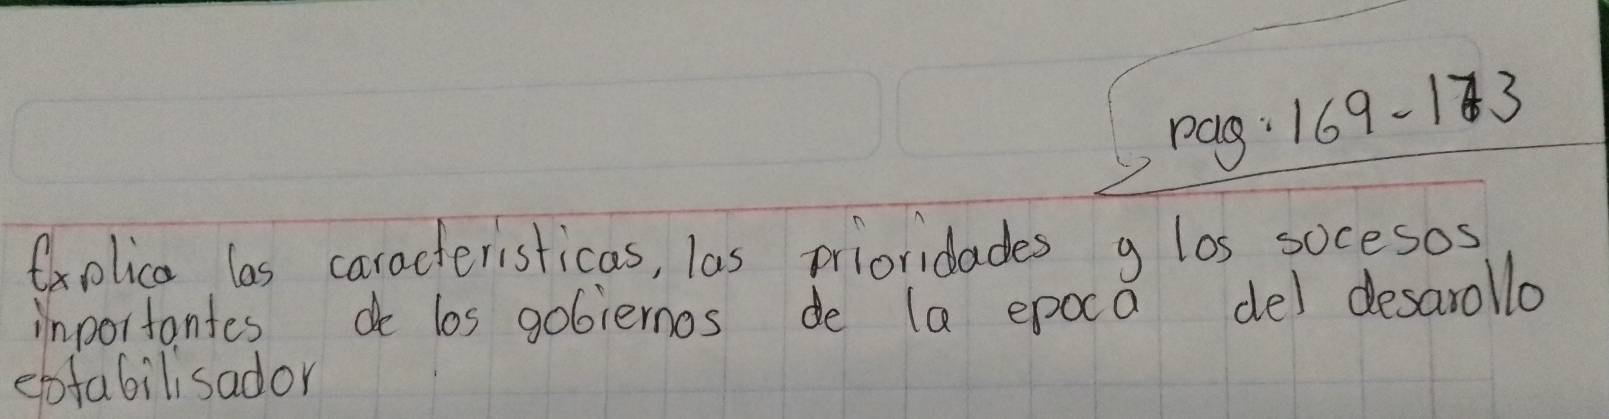 pag. 169-173
Explica las caracteristicas, las prioridades y los socesos
inportantes de los gobiernos de la epoca del desarollo
estabilisador